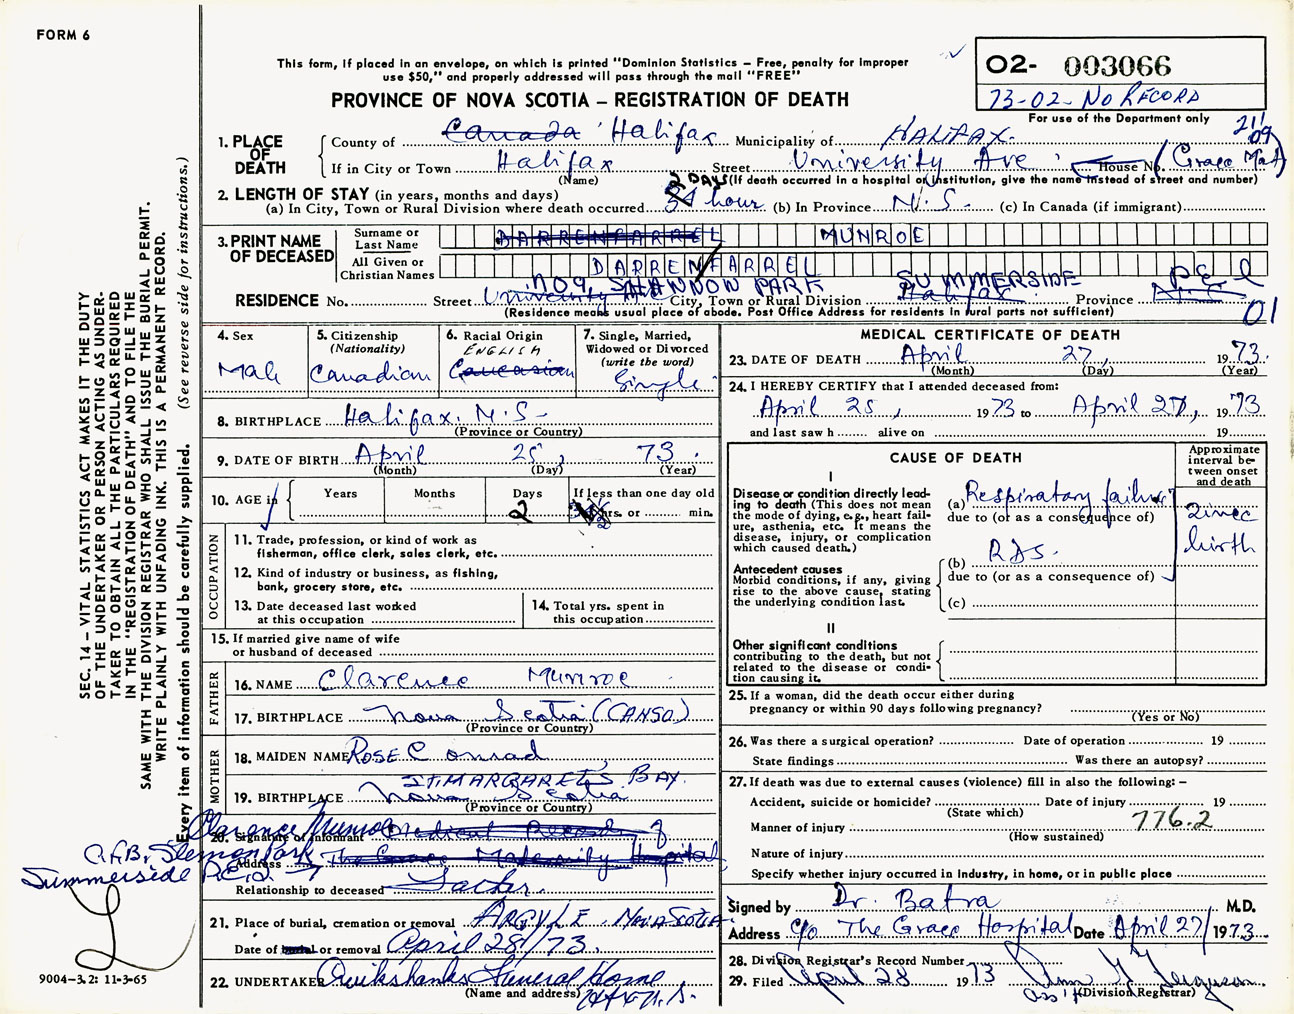 FORM 6
This form, if placed in an envelope, on which is printed "Dominion Statistics – Free, penalty for improper
use $50," and properly addressed will pass through the mail "FREE"
02- 003066
73-02- No RECORD
For use of the Department only
PROVINCE OF NOVA SCOTIA – REGISTRATION OF DEATH
21/09
1. PLACE OF DEATH
County of Canada Halifax Municipality of HALIFAX
If in City or Town Halifax Street University Ave House No. (Grace Mat)
(Name) (If death occurred in a hospital or institution, give the name instead of street and number)
2. LENGTH OF STAY (in years, months and days) 2 DAYS
(a) In City, Town or Rural Division where death occurred hour (b) In Province N.S. (c) In Canada (if immigrant)
3. PRINT NAME OF DECEASED
Surname or Last Name DARRENFARREL MUNROE
All Given or Christian Names DARREN FARREL
1109 SHANNON PARK SUMMERSIDE P.E.I
RESIDENCE No. Street University Ave City, Town or Rural Division Halifax Province N.S.
(Residence means usual place of abode. Post Office Address for residents in rural parts not sufficient)
01
4. Sex Male
5. Citizenship (Nationality) Canadian
6. Racial Origin ENGLISH Caucasian
7. Single, Married, Widowed or Divorced (write the word) Single
8. BIRTHPLACE Halifax. N.S-
(Province or Country)
9. DATE OF BIRTH April 25, 73.
(Month) (Day) (Year)
10. AGE in Years Months Days 2 If less than one day old hrs. or min.
OCCUPATION
11. Trade, profession, or kind of work as
fisherman, office clerk, sales clerk, etc.
12. Kind of industry or business, as fishing,
bank, grocery store, etc.
13. Date deceased last worked
at this occupation
14. Total yrs. spent in
this occupation
15. If married give name of wife
or husband of deceased
FATHER
16. NAME Clarence Munroe
17. BIRTHPLACE Nova Scotia (CANSO)
(Province or Country)
MOTHER
18. MAIDEN NAME ROSE Conrad
ST. MARGARETS BAY.
19. BIRTHPLACE Nova Scotia
(Province or Country)
20. Signature of informant Clarence Munroe Medical Records of
Address The Grace Maternity Hospital
C.F.B. Slemon Park
Summerside P.E.I.
Relationship to deceased Father.
21. Place of burial, cremation or removal ARGYLE. NOVA SCOTIA
Date of burial or removal April 28/73.
22. UNDERTAKER Cruikshanks Funeral Home
(Name and address) Hfx N.S.
MEDICAL CERTIFICATE OF DEATH
23. DATE OF DEATH April 27, 1973.
(Month) (Day) (Year)
24. I HEREBY CERTIFY that I attended deceased from:
April 25, 1973 to April 27, 1973
and last saw h alive on 19
CAUSE OF DEATH
Approximate interval between onset and death
I
Disease or condition directly leading to death (This does not
mean the mode of dying, e.g., heart failure, asthenia, etc. It means the
disease, injury, or complication
which caused death.)
(a) Respiratory failure since birth
due to (or as a consequence of)
(b) RDS.
due to (or as a consequence of)
(c)
Antecedent causes
Morbid conditions, if any, giving
rise to the above cause, stating
the underlying condition last.
II
Other significant conditions
contributing to the death, but not
related to the disease or condition causing it.
25. If a woman, did the death occur either during
pregnancy or within 90 days following pregnancy?
(Yes or No)
26. Was there a surgical operation? Date of operation 19
State findings Was there an autopsy?
27. If death was due to external causes (violence) fill in also the following: –
Accident, suicide or homicide? Date of injury 19
(State which)
Manner of injury 776.2
(How sustained)
Nature of injury
Specify whether injury occurred in industry, in home, or in public place
Signed by Dr. Batra M.D.
Address c/o The Grace Hospital Date April 27/ 1973
28. Division Registrar's Record Number
29. Filed April 28 1973 Ferguson
Ass't (Division Registrar)
SEC. 14 – VITAL STATISTICS ACT MAKES IT THE DUTY
OF THE UNDERTAKER OR PERSON ACTING AS UNDER-
TAKER TO OBTAIN ALL THE PARTICULARS REQUIRED
IN THE "REGISTRATION OF DEATH" AND TO FILE THE
SAME WITH THE DIVISION REGISTRAR WHO SHALL ISSUE THE BURIAL PERMIT.
WRITE PLAINLY WITH UNFADING INK. THIS IS A PERMANENT RECORD.
Every item of information should be carefully supplied. (See reverse side for instructions.)
9004-3.2: 11-3-65